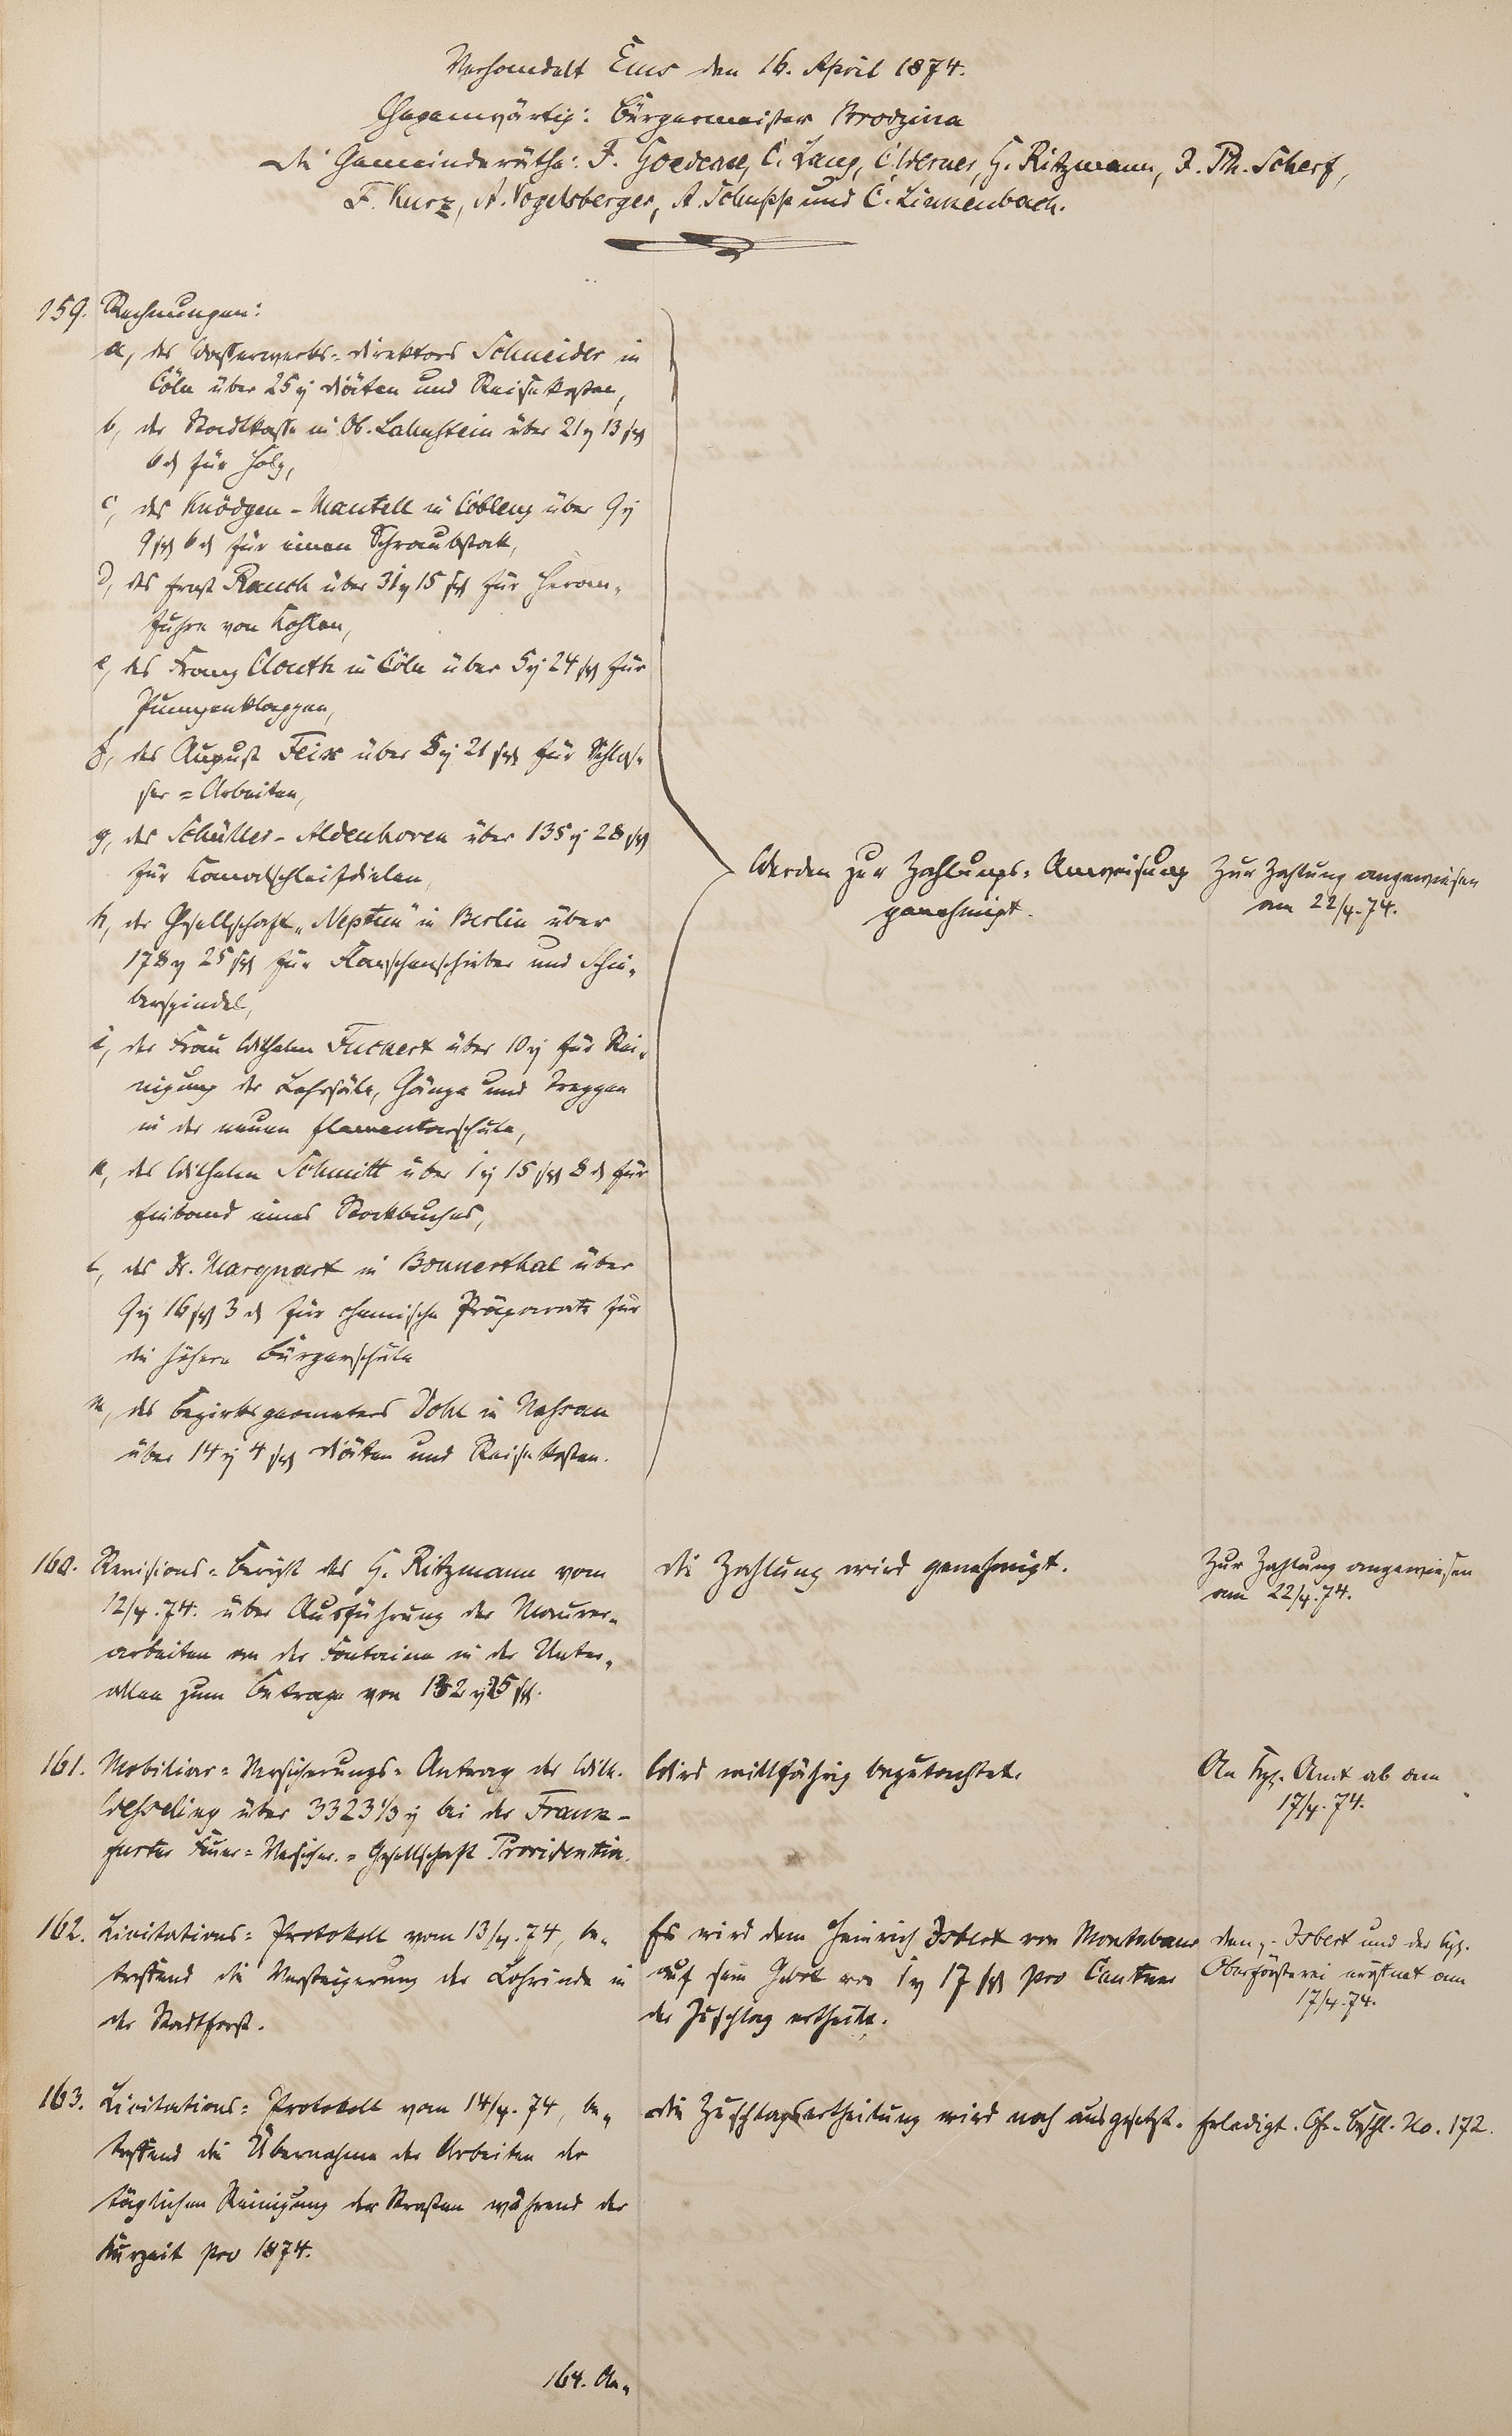 Verhandelt Ems den 16. April 1874.
Gegenwärtig: Bürgermeister Brodzina
Die Gemeinderäthe: F. Goedecke, C. Lang, C. Werner, H. Ritzmann, J. Ph. Scherf,
F. Kurz, A. Vogelsberger, A. Schupp und C. Linkenbach.
159. Rechnungen:
a, des Wasserwerks-Direktors Schneider in
Cöln über 25 rℓ Diäten und Reisekosten,
b, der Stadtkasse in Ob. Lahnstein über 21 rℓ 13 sgr
6 d für Holz,
c, des Knödgen-Mantell in Coblenz über 9 rℓ
9 sgr 6 d für einen Schraubstock,
d, des Ernst Rauch über 31 rℓ 15 sgr für Heran-
fuhre von Kohlen,
e, des Franz Clouth in Cöln über 5 rℓ 24 sgr für
Pumpenklappen,
f, des August Feix über 8 rℓ 21 sgr für Schlos-
ser-Arbeiten,
g, der Schüller-Aldenhoven über 135 rℓ 28 sgr
für
h, der Gesellschaft „Neptun" in Berlin über
178 rℓ 25 sgr für Flanschenschieber und Schie-
berspindel,
i, der Frau Wilhelm Fuckert über 10 rℓ für Rei-
nigung der Lehrsäle, Gänge und Treppen
in der neuen Elementarschule,
k, des Wilhelm Schmitt über 1 rℓ 15 sgr 8 d für
Einband eines Stockbuches,
l, des Dr. Marquart in Bonnerthal über
9 rℓ 16 sgr 3 d für chemische Präparate für
die höhere Bürgerschule
m, des Bezirksgeometers Dohl in Nassau
über 14 rℓ 4 sgr Diäten und Reisekosten.
Werden zur Zahlungs-Anweisung
genehmigt.
Zur Zahlung angewiesen
am 22/4.74.
160. Revisions-Bericht des H. Ritzmann vom
12/4.74. über Ausführung der Maurer-
arbeiten an der Fontaine in der Unter-
allee zum Betrage von 132 rℓ 25 sgr.
Die Zahlung wird genehmigt.
Zur Zahlung angewiesen
am 22/4.74.
161. Mobiliar-Versicherungs-Antrag des Wilh.
Wesseling über 3323 1/3 rℓ bei der Frank-
furter Feuer-Versicher.-Gesellschaft Providentia.
Wird willfährig begutachtet.
An Kgl. Amt ab am
17/4.74.
162. Licitations-Protokoll vom 13/4.74, be-
treffend die Versteigerung der Lohrinde in
der Stadtforst.
Es wird dem Heinrich Isbert von Montabaur
auf sein Gebot von 1 rℓ 17 sgr pro Centner
der Zuschlag ertheilt.
Dem p. Isbert und der Kgl.
Oberförsterei eröffnet am
17/4.74.
163. Licitations-Protokoll vom 14/4.74, be-
treffend die Übernahme der Arbeiten der
täglichen Reinigung der Straßen während der
Kurzeit pro 1874.
Die Zuschlagsertheilung wird noch ausgesetzt.
Erledigt. Cfr. Beschl. No. 172.
164. An-